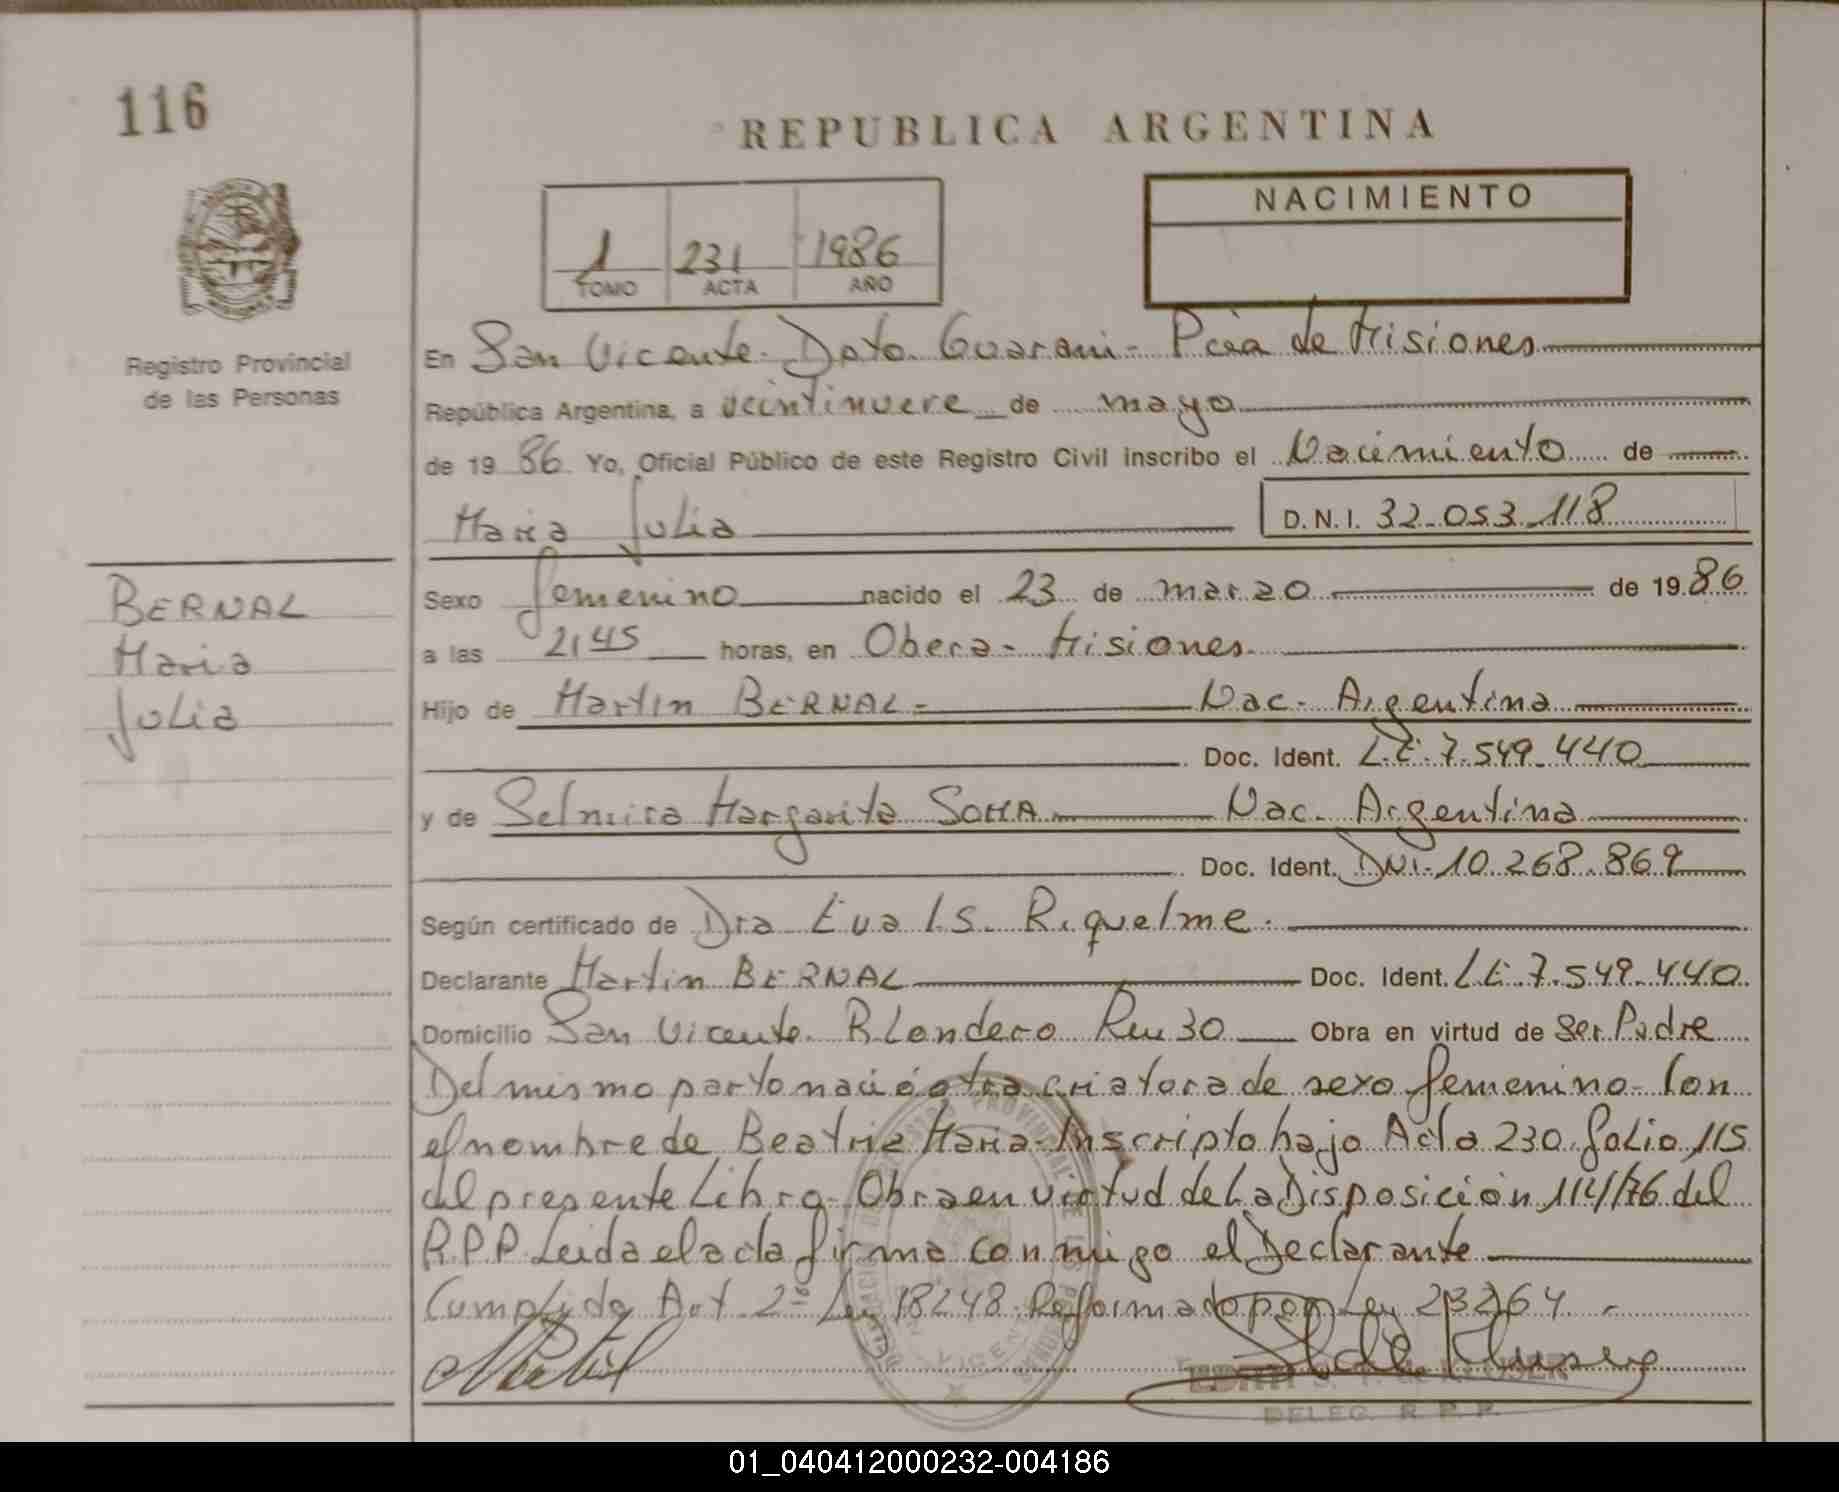 116
REPUBLICA ARGENTINA
NACIMIENTO
1 231 1986
TOMO ACTA AÑO
Registro Provincial
de las Personas
En San Vicente. Dpto. Guarani - Pcia de Misiones
República Argentina, a veintinueve de mayo
de 19 86 Yo, Oficial Público de este Registro Civil inscribo el Nacimiento de
Maria Julia D.N.I. 32.053.118
BERNAL
Maria
Julia
Sexo femenino nacido el 23 de marzo de 19 86
a las 2,45 horas, en Obera - Misiones.
Hijo de Martin BERNAL - Nac. Argentina
Doc. Ident. L.E. 7.549.440
y de Selmira Margarita SOMA Nac. Argentina
Doc. Ident. DNI. 10.268.869
Según certificado de Dra Eva I.S. Riquelme.
Declarante Martin BERNAL Doc. Ident. L E. 7.549.440
Domicilio San Vicente. B. Londero Km 30 Obra en virtud de ser Padre
Del mismo parto nació otra criatura de sexo femenino - Con
el nombre de Beatriz Maria - Inscripto bajo Acta 230 folio 115
del presente Libro - Obra en virtud de la Disposición 114/76 del
R.P.P. Leida el acta firma conmigo el Declarante
Cumplido Art. 2º Ley 18248 Reformado por Ley 23264.
DELEG. R. P. P.
01_040412000232-004186